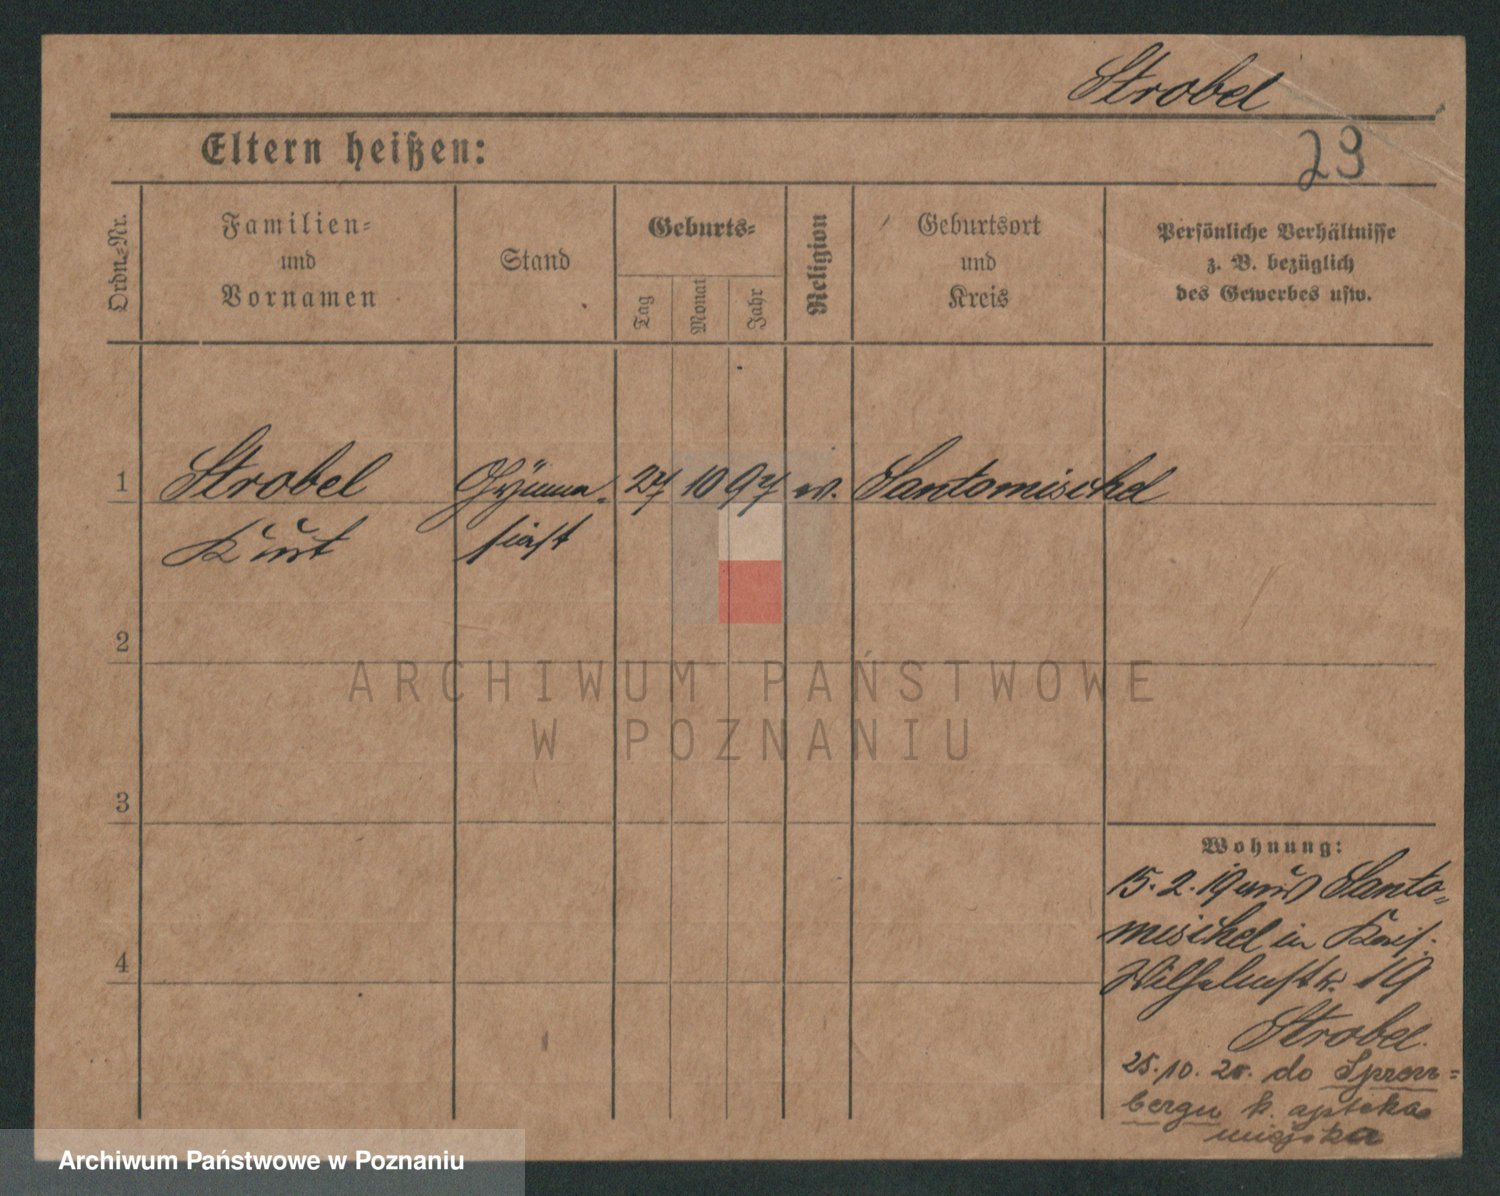 Strobel
Eltern heißen:
23
Ordn.-Nr.
Familien-
und
Vornamen
Stand
Geburts-
Tag
Monat
Jahr
Religion
Geburtsort
und
Kreis
Persönliche Verhältnisse
z. B. bezüglich
des Gewerbes usw.
1 Strobel Gymna- 27 10 97 ev. Santomischel
Kurt siast
2
3
4
ARCHIWUM PAŃSTWOWE
W POZNANIU
Wohnung:
15.2.19 aus Santo-
mischel in
Wilhelmstr. 19
Strobel.
25.10.20. do Sprem-
bergu k. apteka
miejska
Archiwum Państwowe w Poznaniu